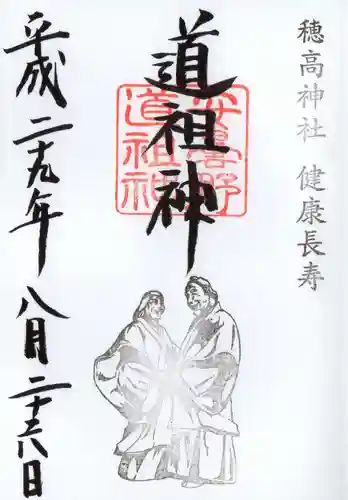 穂高神社 健康長寿
道祖神
安曇野
道祖神
平成二十九年八月二十六日